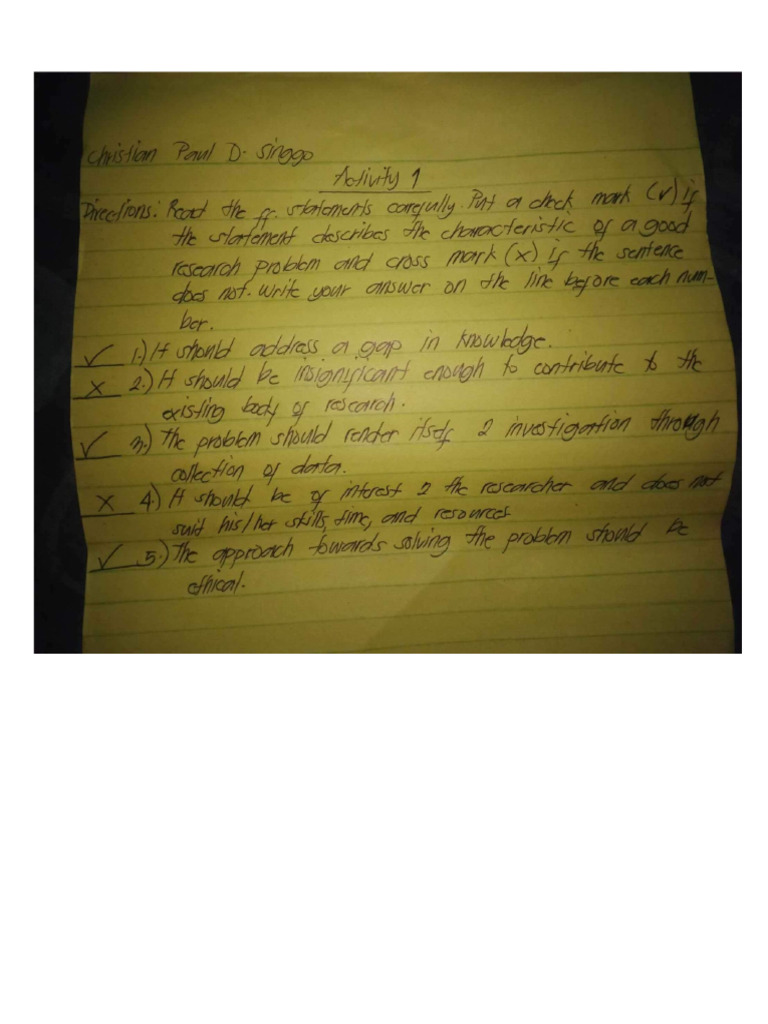 Christian Paul D. Singgo
Activity 1
Directions: Read the ff. statements carefully. Put a check mark (✓) if
the statement describes the characteristic of a good
research problem and cross mark (x) if the sentence
does not. Write your answer on the line before each num-
ber.
✓ 1.) It should address a gap in knowledge.
x 2.) It should be insignificant enough to contribute to the
existing body of research.
✓ 3.) The problem should render itself 2 investigation through
collection of data.
x 4) It should be of interest 2 the researcher and does not
suit his/her skills, time, and resources
✓ 5.) The approach towards solving the problem should be
ethical.